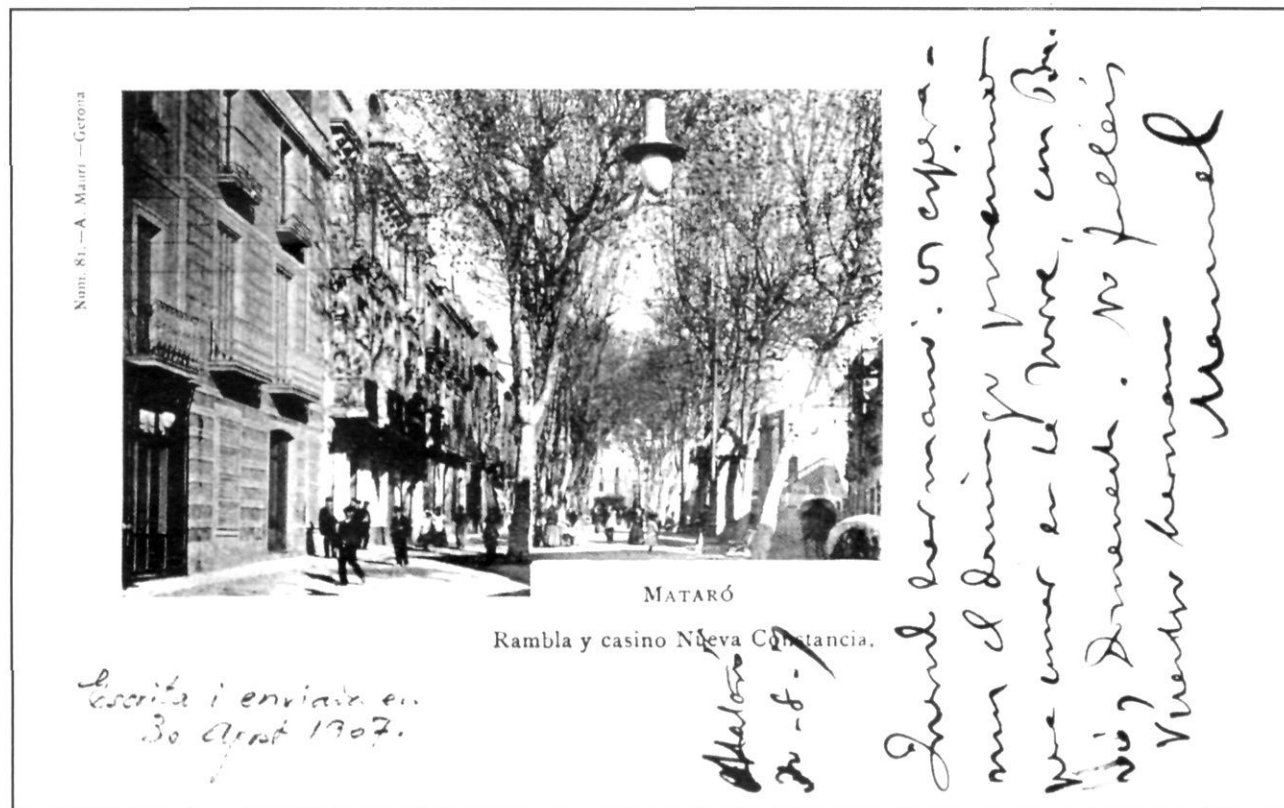 Núm. 81.—A. Mauri.—Gerona
MATARÓ
Rambla y casino Nueva Constancia.
Escrita i enviada en
30 Agost 1907.
Mataró
30-8-7
hermano: os espera-
mos el domingo proximo
para comer en la Torre, con
y Domenech. No falleis
Vuestro hermano
Manuel